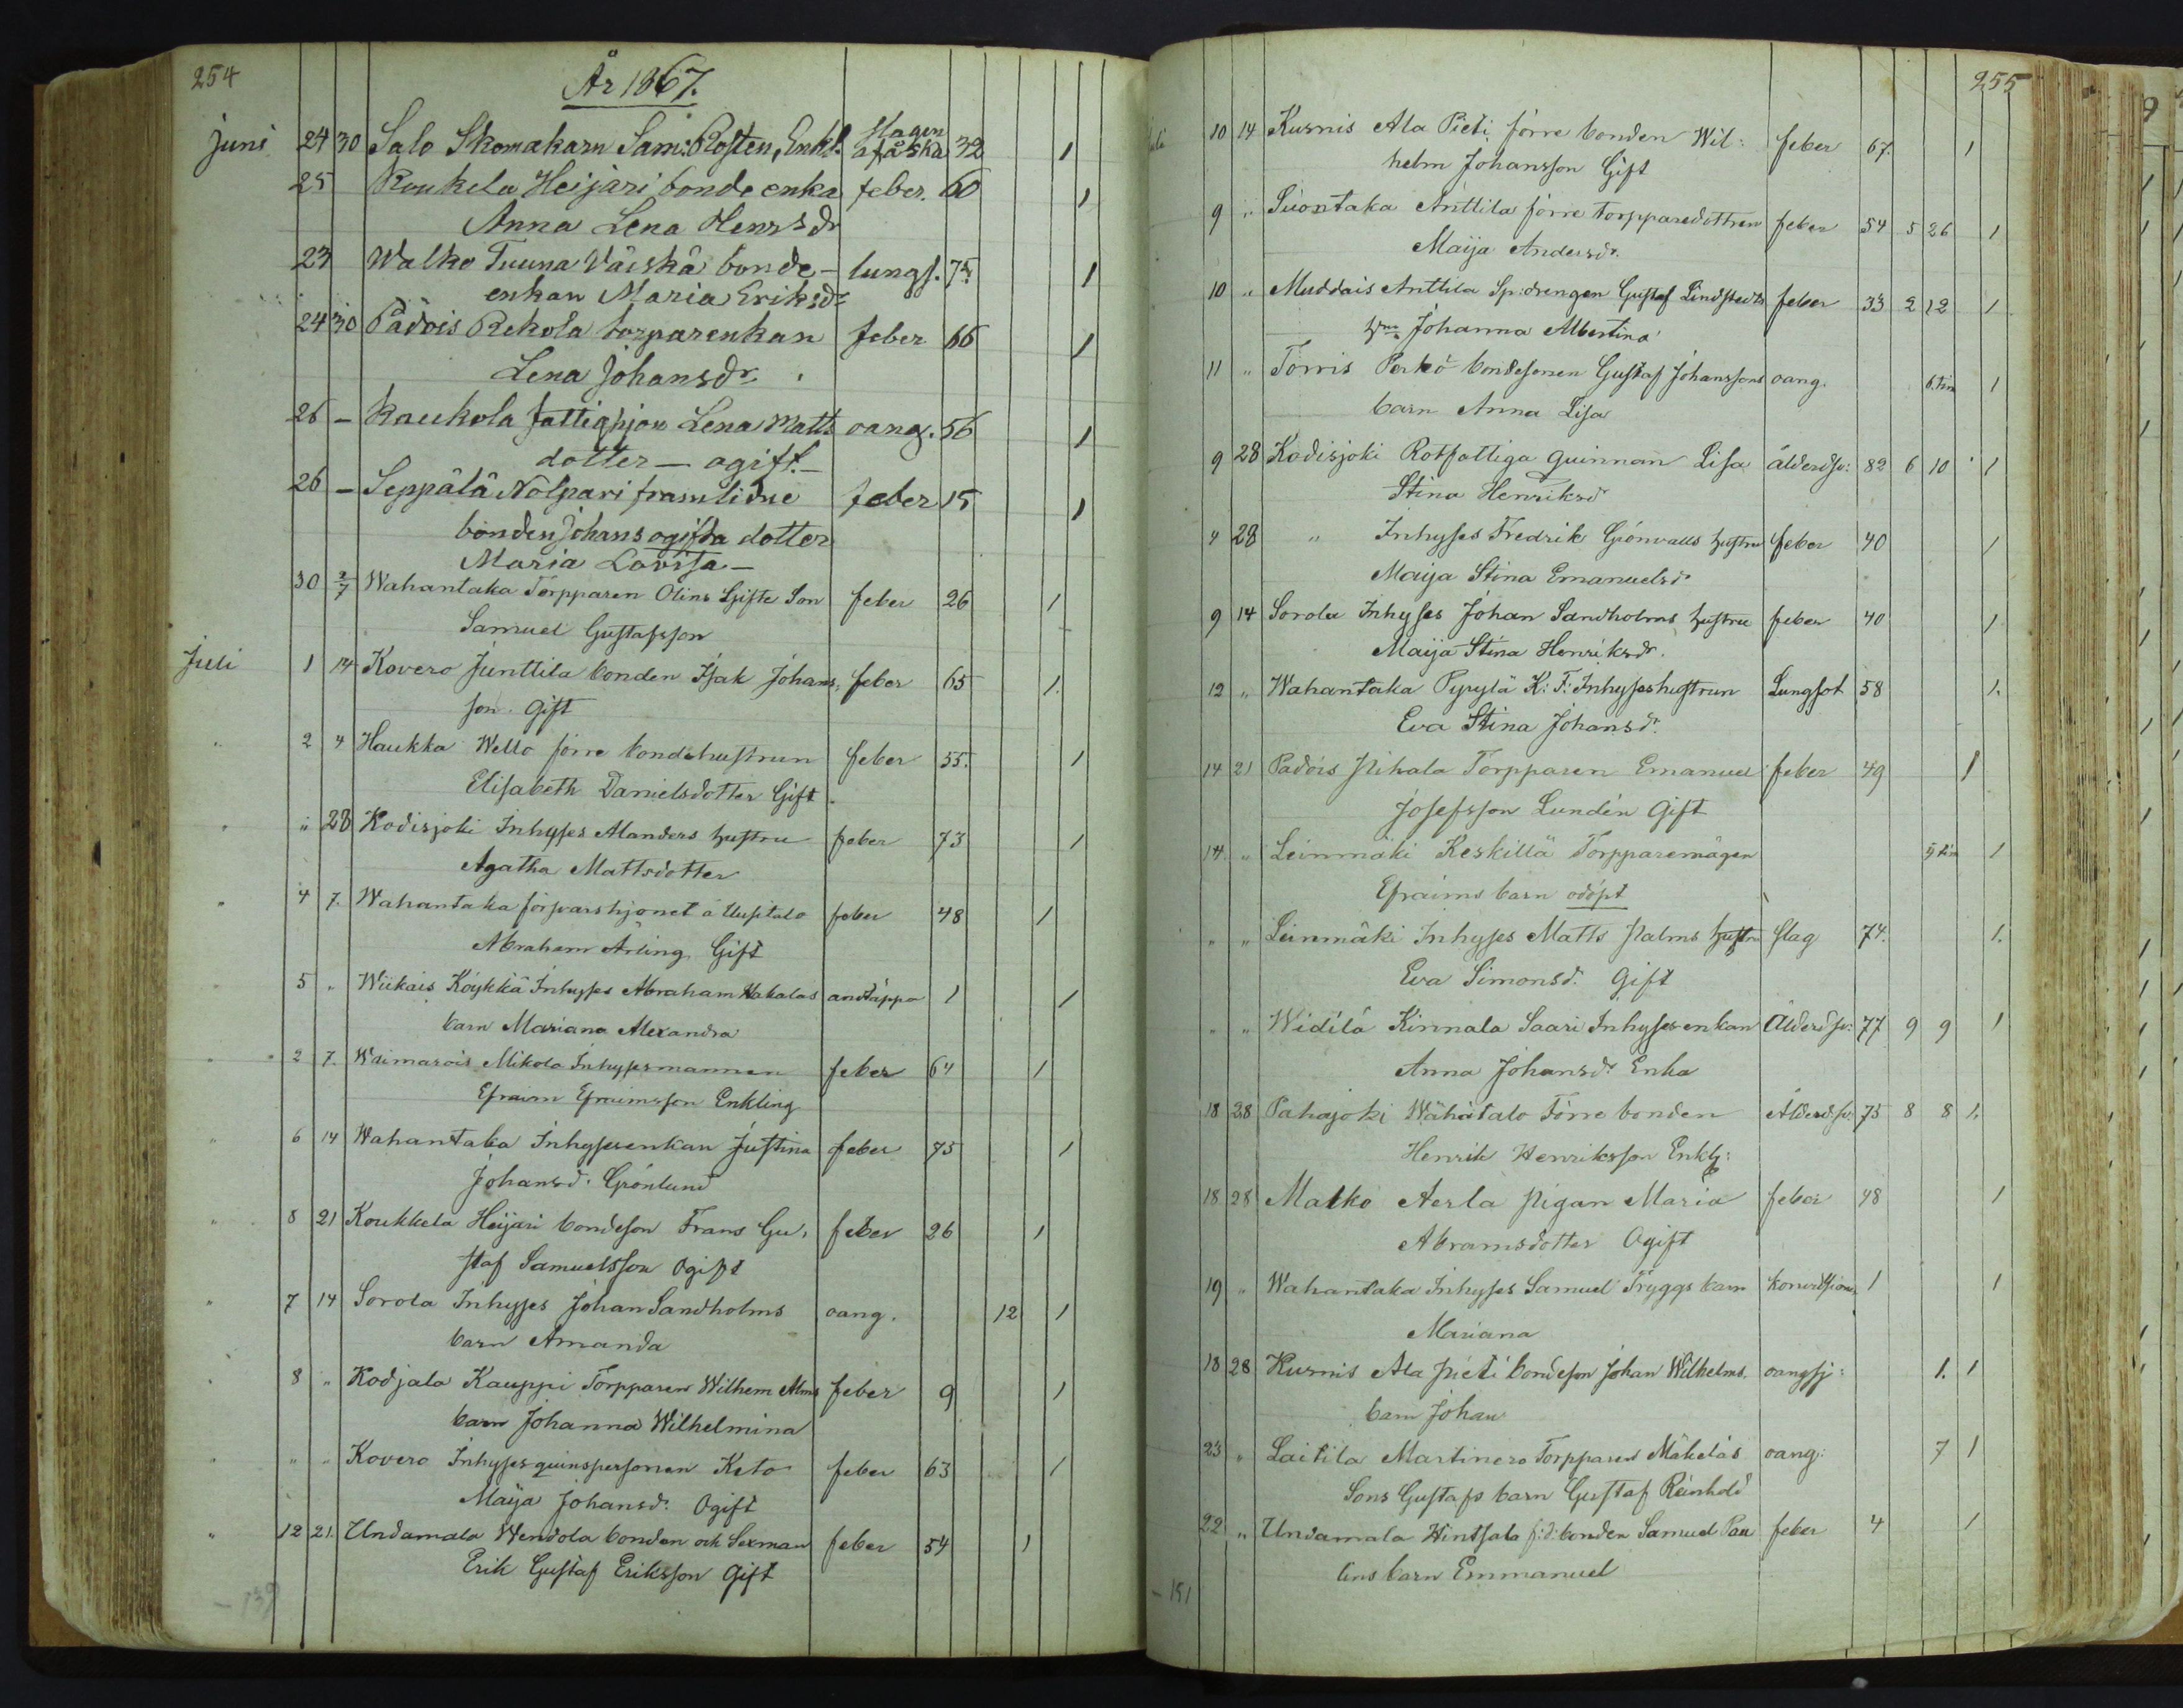 254
År 1867.
juni 24 30 Salo Skomakarn Sam: Rosten, Enkl. slagen af åska 32 1
25 Koukela Heijari bonde enka feber. 60 1
Anna Lena Henrsdr
23 Walko Tuuna Väiskä bonde- lungs. 75 1
enkan Maria Eriksdr
24 30 Pädois Rekola torparenkan feber 66 1
Lena Johansdr.
26 – Kaukola fattighjon Lena Matts oang. 56 1
dotter – ogift –
26 – Seppälä Nolpari framlidne feber 15 1
bonden Johans ogifta dotter
Maria Lovisa –
30 2/7 Wahantaka Torpparen Olins Gifte Son feber 26 1
Samuel Gustafsson
Juli 1 14 Kovero Junttila bonden Isak Johans, feber 65 1.
son. Gift
2 4 Haukka Wello förre bondehustrun feber 55. 1
Elisabeth Danielsdotter Gift
" 28 Kodisjoki Inhyses Alanders hustru feber 73 1
Agatha Mattsdotter
4 7. Wahantaka försvarshjonet å Uusitalo feber 48 1
Abraham Ärling Gift
5 " Wiikais Köykkä Inhyses Abraham Hakalas andtäppa 1 1
barn Mariana Alexandra
2 7. Waimarois Mikola Inhysesmannen feber 64 1
Efraim Efraimsson Enkling
6 14 Wahantaka Inhysesenkan Justina feber 75 1
Johansd. Grönlund
8 21 Koukkela Heijari bondeson Frans Gu, feber 26 1
staf Samuelsson Ogift
7 14 Sorola Inhyses Johan Sandholms oang. 12 1
barn Amanda
8 " Kodjala Kauppi Torpparen Wilhem Alms feber 9 1
barn Johanna Wilhelmina
" " Kovero Inhyses quinspersonen Keto feber 63 1
Maija Johansd: Ogift
12 21. Undamala Wendola bonden och Sexman feber 54 1
Erik Gustaf Eriksson Gift
– 139
255
10 14 Kurnis Ala Pieti förre bonden Wil: feber 67. 1
helm Johansson Gift
9 " Suontaka Anttila förre torpparedottren feber 54 5 26 1
Maija Andersdr.
10 " Muddais Anttila Sp:drengen Gustaf Lindstedts feber 33 2 12 1
Johanna Albertina
11 " Torris Perkö bondesonen Gustaf Johanssons oang. 6. tim 1
barn Anna Lisa
9 28 Kodisjoki Rotfattiga quinnan Lisa älderdsv: 82 6 10 1
Stina Henriksdr
4 28 " Inhyses Fredrik Grönvalls hustru feber 40 1
Maija Stina Emanuelsdr
9 14 Sorola Inhyses Johan Sandholms hustru feber 40 1
Maija Stina Henriksdr.
12 " Wahantaka Pyrylä K: F: Inhyseshustrun Lungsot 58 1.
Eva Stina Johansdr.
14 21 Padois Pihala Torpparen Emanuel feber 49 1
Josefsson Lundén Gift
14 " Leinmäki Keskillä Torpparemågen 5 tim 1
Efraims barn odöpt
" " Leinmäki Inhyses Matts Palms hustru slag 74. 1.
Eva Simonsd. Gift
" " Widilä Kinnala Saari Inhysesenkan Älderdsv: 77 9 9 1
Anna Johansdr Enka
18 28 Pahajoki Wähätalo Förre bonden Älderdsv: 75 8 8 1.
Henrik Henriksson Enklg:
18 28 Malko Aerla pigan Maria feber 48 1
Abramsdotter Ogift
19 " Wahantaka Inhyses Samuel Tryggs barn konvulsion 1 1
Mariana
18 28 Kurnis Ala pieti bondeson Johan Wilhelms. oangsj: 1. 1
barn Johan
23 " Laitila Martinero Torpparen Mäkeläs oang: 7 1
Sons Gustafs barn Gustaf Reinhold
22 " Undamala Hintsala f:d: bonden Samuel Pau feber 4 1
lins barn Emmanuel
– 151